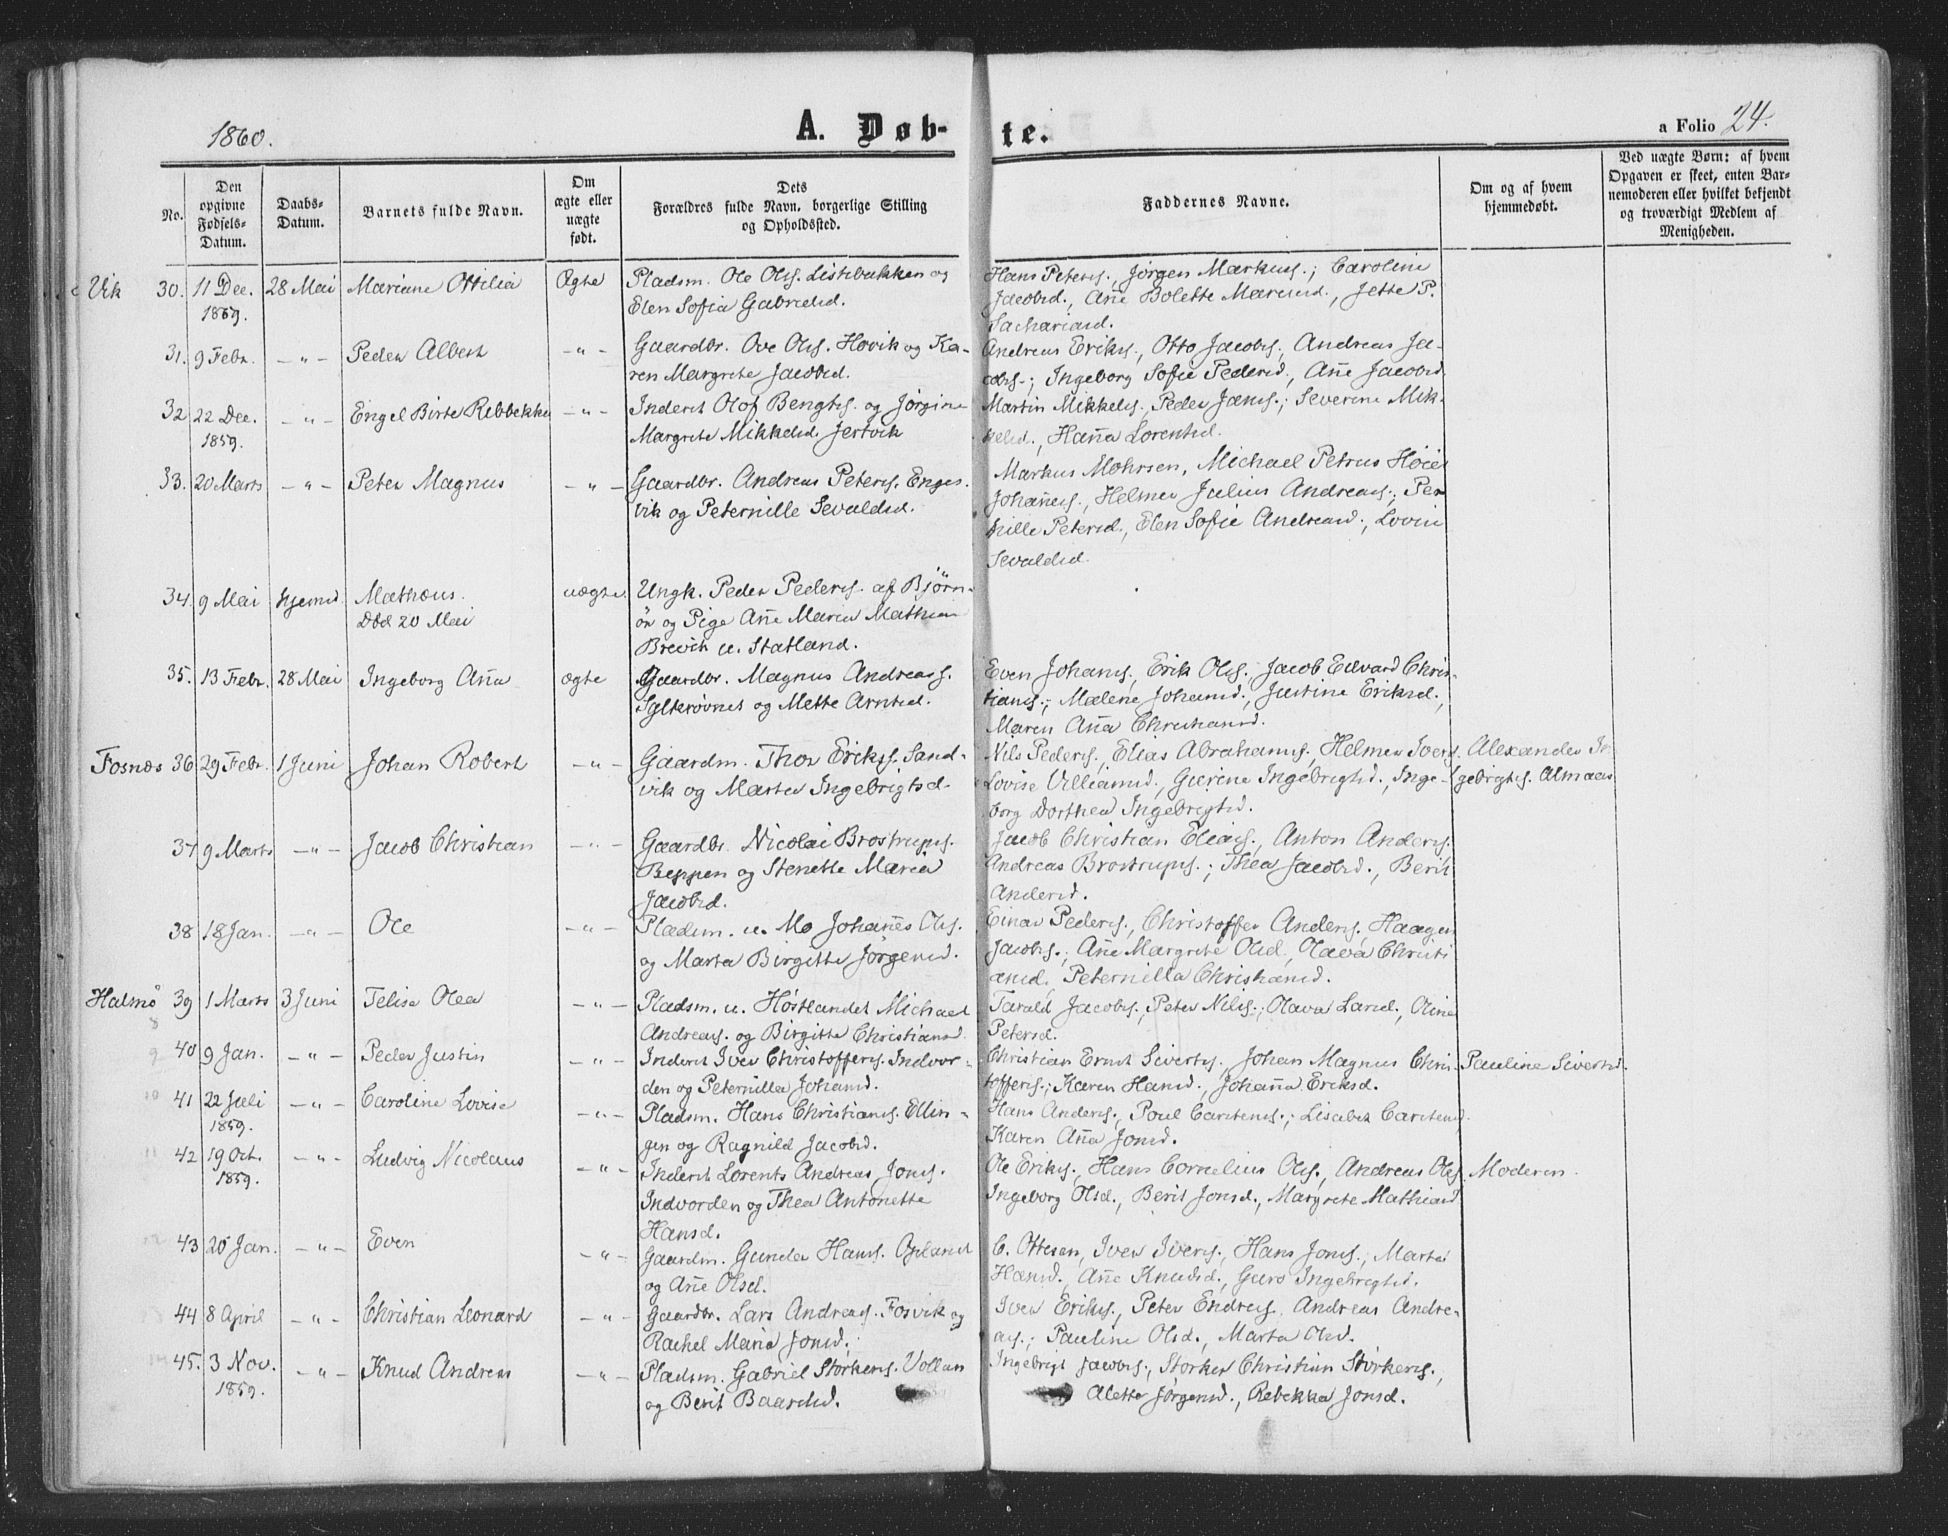 1860.
A. Døb-
te.
a Folio 24.
No.
Den opgivne Fødsels-Datum.
Daabs-Datum.
Barnets fulde Navn.
Om ægte eller uægte født.
Dets Forældres fulde Navn, borgerlige Stilling og Opholdssted.
Faddernes Navne.
Om og af hvem hjemmedøbt.
Ved uægte Børn: af hvem Opgaven er skeet, enten Barnemoderen eller hvilket bekjendt og troværdigt Medlem af Menigheden.
Vik 30. 11 Dec. 1859. 28 Mai Mariane Ottilia Ægte
Pladsm. Ole Ols. Listebakken og
Elen Sofia Gabrielsd.
Hans Peters., Jørgen Markuss.; Caroline
Jacobsd., Añe Bolette Mariusd., Jette P.
Sachariasd.
31. 9 Febr. -"- Peder Albert -"-
Gaardbr. Ove Ols. Hovik og Ka-
ren Margrete Jacobsd.
Andreas Eriks., Otto Jacobs., Andreas Ja-
cobs.; Ingeborg Sofie Pedersd., Añe Jacobsd.
32 22 Dec. 1859. -"- Engel Birte Rebbekka -"-
Inderst Olof Bengts. og Jørgine
Margrete Mikkelsd. Jertvik
Martin Mikkels., Peder Jans.; Severine Mik-
kelsd., Haña Lorentsd.
33. 20 Marts -"- Peter Magnus -"-
Gaardbr. Andreas Peters. Enges-
vik og Peternille Sevaldsd.
Markus Mohrsen, Michael Petrus Høier
Johañes., Helmer Julius Andreas.; Per
nille Petersd., Elen Sofie Andreasd., Lovise
Sevaldsd.
34. 9 Mai hjemd. Mathæus. uægte.
Død 20 Mai
Ungk. Peder Peders. af Bjørn-
ør og Pige Añe Maria Mathias
Brevik u. Statland.
35. 13 Febr. 28 Mai Ingeborg Aña ægte
Gaardbr. Magnus Andreas.
Sylterøvnes og Mette Arntsd.
Even Johans., Erik Ols., Jacob Edvard Chris-
tians.; Malene Johansd., Justine Eriksd.,
Maren Aña Christiansd.
Fosnæs 36 29 Febr. 1 Juni Johan Robert -"-
Gaardm. Thor Eriks. Sand-
vik og Marta Ingebrigtsd.
Nils Peders., Elias Abrahams., Helmer Ivers.
Lovise Villiamsd., Gurine Ingebrigtsd., Inge-
borg Dorthea Ingebrigtsd.
Alexander In
gebrigts. Almaas
37 9 Marts -"- Jacob Christian -"-
Gaardbr. Nicolai Brostrups.
Beppen og Stenette Maria
Jacobsd.
Jacob Christian Elias., Anton Anders.
Andreas Brostrups.; Thea Jacobsd., Berit
Andersd.
38 18 Jan. -"- Ole -"-
Pladsm. u. Mo Johañes Ols.
og Marta Birgitte Jørgensd.
Einar Peders., Christoffer Anders. Haagen
Jacobs.; Añe Margrete Olsd., Olava Christi
ansd., Peternilla Christiansd.
Halsnø 39 1 Marts 3 Juni Telisa Olea -"-
Pladsm. u. Høstlandet Michael
Andreas. og Birgitte Christiansd.
Tarald Jacobs., Peter Nils.; Olava Larsd., Oline
Petersd.
40 9 Jan. -"- Peder Justin -"-
Inderst Iver Christoffers. Indvor-
den og Peternilla Johansd.
Christian Ernst Siverts., Johan Magnus Chris-
toffers.; Karen Hansd., Johaña Eriksd.
Pauline Sivertsd.
41 22 Juli 1859. -"- Caroline Lovise -"-
Pladsm. Hans Christians. Ellin-
gen og Ragnild Jacobsd.
Hans Anders., Poul Carstens.; Lisabet Carstensd.
Karen Aña Jonsd.
42 19 Oct. 1859. -"- Ludvig Nicolaus -"-
Inderst Lorents Andreas Jons.
Indvorden og Thea Antonette
Hansd.
Ole Eriks., Hans Cornelius Ols., Andreas Ols.
Ingeborg Olsd., Berit Jonsd., Margrete Mathiasd.
Moderen.
43 20 Jan. -"- Even -"-
Gaardm. Gunder Hans. Opland
og Añe Olsd.
C. Ottesen, Iver Ivers., Hans Jons.; Marta
Hansd., Añe Knudsd., Guro Ingebrigtsd.
44 8 April -"- Christian Leonard -"-
Gaardbr. Lars Andreas. Fosvik og
Rachel Maria Jonsd.
Iver Eriks., Peter Endres. Andreas Andre-
as.; Pauline Olsd., Marta Olsd.
45. 3 Nov. 1859. -"- Knud Andreas -"-
Pladsm. Gabriel Storkers. Vollan
og Berit Baardsd.
Ingebrigt Jacobs., Storker Christian Storkers.,
Alette Jørgensd., Rebekka Jonsd.